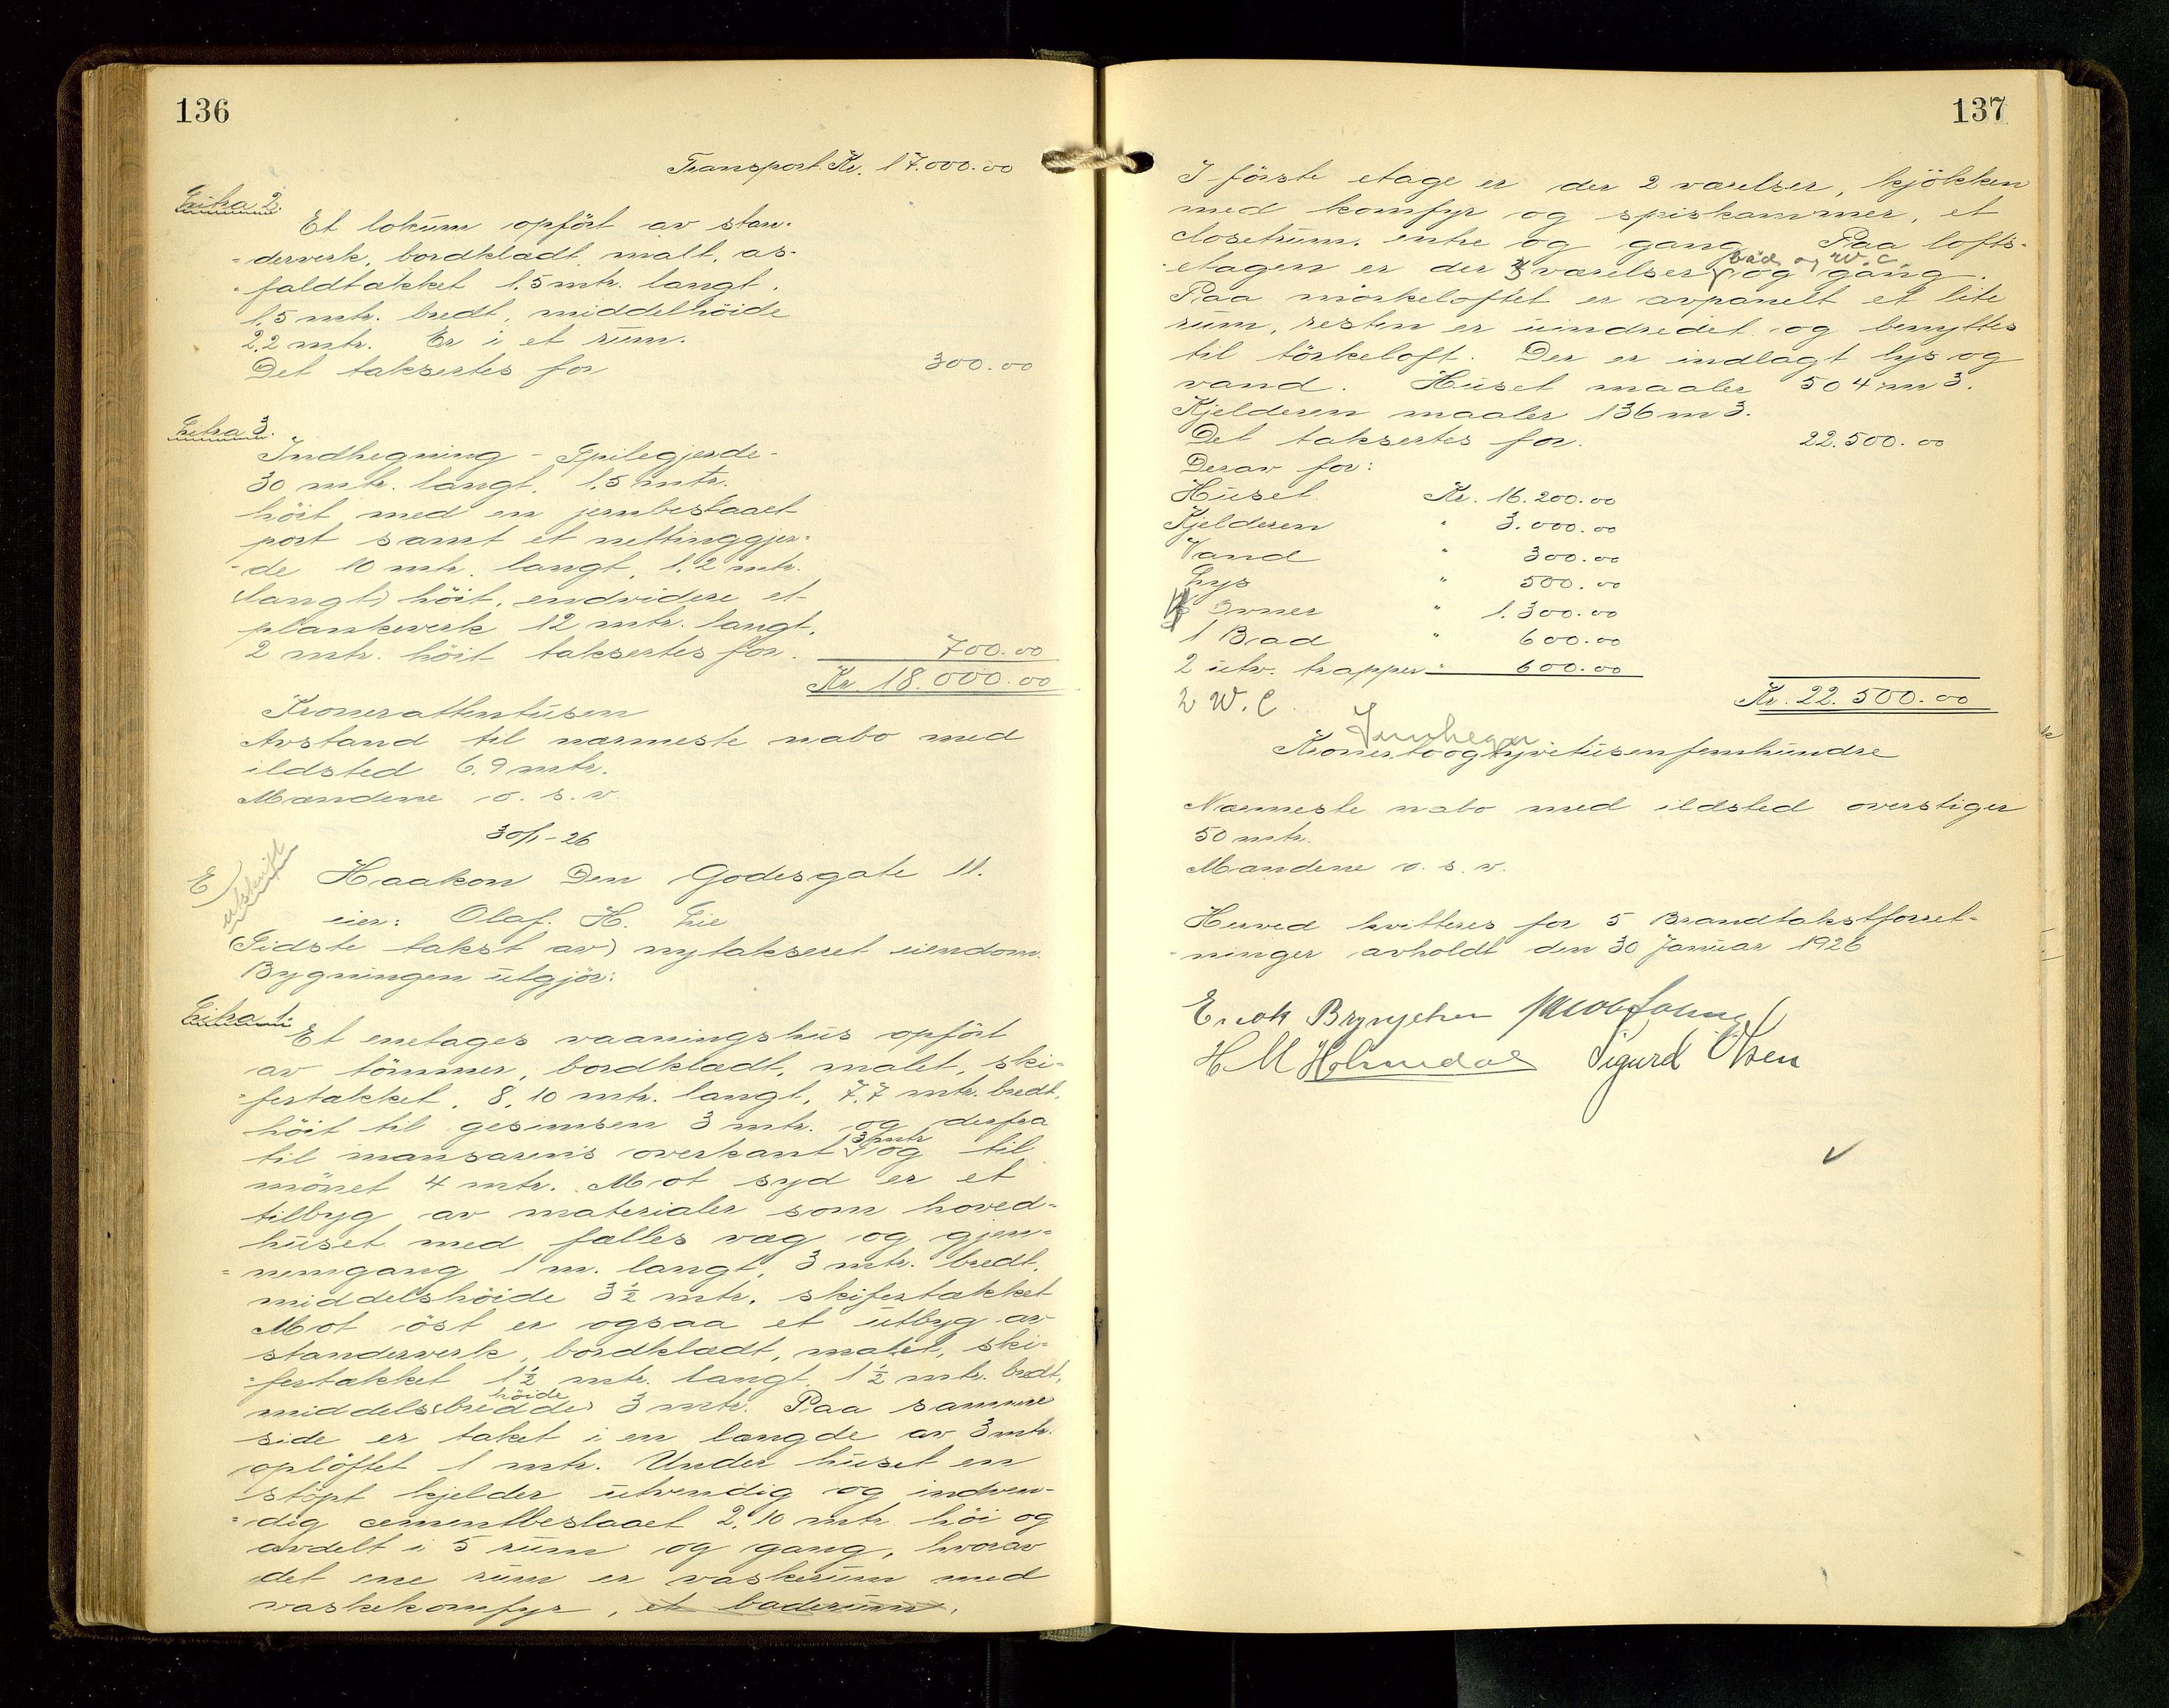 136
Transport Kr. 17.000.00
Litra 2.
Et lokum opført av stan-
-derverk, bordklædt, malt, as-
-faldtækket 1.5 mtr. langt,
1.5 mtr. bredt, middelhöide
2.2 mtr. Er i et rum.
Det taksertes for 300.00
Litra 3.
Indhegning - Spilegjerde -
30 mtr. langt, 1,5 mtr.
höit med en jernbeslaaet
port samt et nettinggjer-
-de 10 mtr. langt, 1.2 mtr.
(langt) höit, endvidere et
plankeverk 12 mtr. langt,
2 mtr. höit taksertes for. 700.00
Kr. 18.000.00
Kroner attentusen
Avstand til nærmeste nabo med
ildsted 6.9 mtr.
Mændene o. s. v.
30/1-26
E) avskrift
Haakon Den Godesgate 11.
eier: Olaf. H. Lie
(Sidste takst av) nytakseret eiendom.
Bygningen utgjör:
Litra 1.
Et enetages vaaningshus opfört
av tömmer, bordklædt, malet, ski-
-fertækket, 8,10 mtr. langt, 7.7 mtr. bredt,
höit til gesimsen 3 mtr. og derfra
til mansarens overkant 3 mtr og til
mönet 4 mtr. Mot syd er et
tilbyg av materialer som hoved-
huset med fælles væg og gjen-
-nemgang 1 m. langt, 3 mtr. bredt,
middelshöide 3 1/2 mtr, skifertækket
Mot öst er ogsaa et utbyg av
standerverk, bordklædt, malet, ski-
-fertækket 1 1/2 mtr. langt, 1 1/2 mtr. bredt,
middels(bredde) höide 3 mtr. Paa samme
side er taket i en længde av 3 mtr.
oplöftet 1 mtr. Under huset en
stöpt kjelder utvendig og indven-
-dig cementbeslaaet 2,10 mtr. höi og
avdelt i 5 rum og gang, hvorav
det ene rum er vaskerum med
vaskekomfyr, et baderum,
137
I förste etage er der 2 værelser, kjökken
med komfyr og spiskammer, et
closetrum, entre og gang. Paa lofts-
-etagen er der 3 værelser, bad og W.C. og gang.
Paa mörkeloftet er avpanelt et lite
rum, resten er uindredet og benyttes
til törkeloft. Der er indlagt lys og
vand. Huset maaler 504 m3.
Kjelderen maaler 136 m3.
Det taksertes for. 22.500.00
Derav for:
Huset Kr. 16.200.00
Kjelderen " 3.000.00
Vand " 300.00
Lys " 500.00
Ovner " 1.300.00
1 Bad " 600.00
2 utv. trapper " 600.00
2 W.C.
Kr. 22.500.00
Kroner toogtyvetusenfemhundre
Nærmeste nabo med ildsted overstiger
50 mtr.
Mændene o. s. v.
Herved kvitteres for 5 Brandtakstforret-
-ninger avholdt den 30 Januar 1926
H M Holmedal Sigurd Olsen